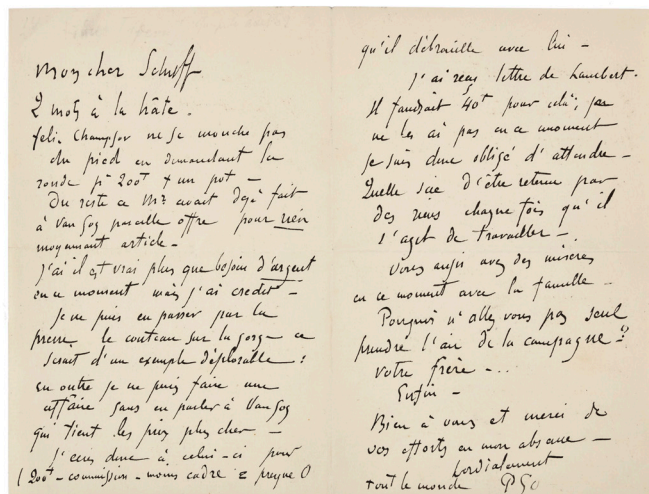 Mon cher Schuff
2 mots à la hâte.
felix Champsor ne se mouche pas
du pied en demandant la
ronde pr 200f + un pot —
Du reste ce Mr avait déjà fait
à Van Gog pareille offre pour rien
moyennant article —
J'ai il est vrai plus que besoin d'argent
en ce moment mais j'ai credit —
Je ne puis en passer par la
presse, le couteau sur la gorge — ce
serait d'un exemple déplorable :
en outre je ne puis faire une
affaire sans en parler à Van Gog
qui tient les prix plus cher —
J'écris donc à celui-ci pour
(200f — commission — moins cadre = presque 0
qu'il débrouille avec lui —
J'ai reçu lettre de Lambert.
Il faudrait 40f pour celà, je
ne les ai pas en ce moment
je suis donc obligé d'attendre —
Quelle scie d'être retenu par
des riens chaque fois qu'il
s'agit de travailler —
Vous aussi avez des misères
en ce moment avec la famille —
Pourquoi n'allez vous pas seul
prendre l'air de la campagne ?
Votre frère — ..
Enfin —
Bien à vous et merci de
vos efforts en mon absence —
Cordialement
tout le monde PGo